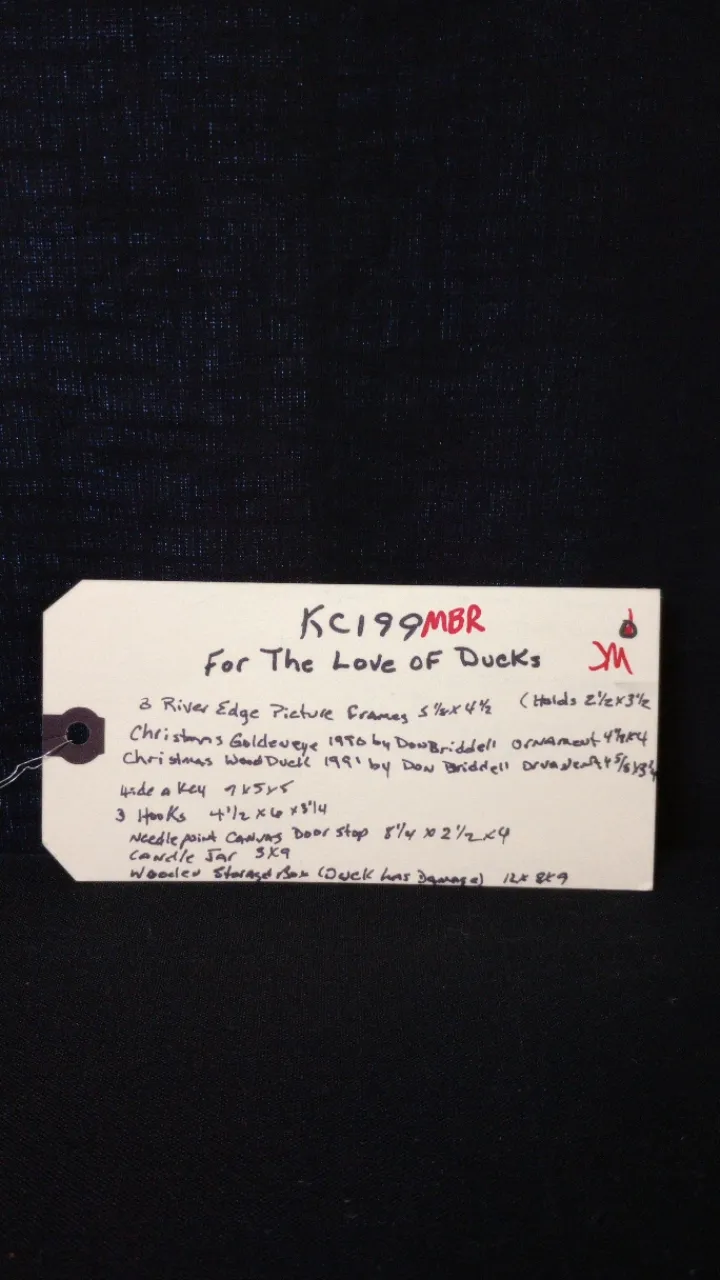 KC199MBR
For The Love OF Ducks
JM
3 River Edge Picture Frames 5⅛x4½ (Holds 2½x3½
Christmas Goldeneye 1990 by Don Briddell ORNAMENT 4½x4
Christmas Wood Duck 1991 by Don Briddell Ornament 4⅝x3¼
Hide a Key 7x5x5
3 Hooks 4½x6x3¼
Needlepoint Canvas Door Stop 8¼x2½x4
Candle Jar 3x9
Wooden Storage Box (Duck has Damage) 12x8x9